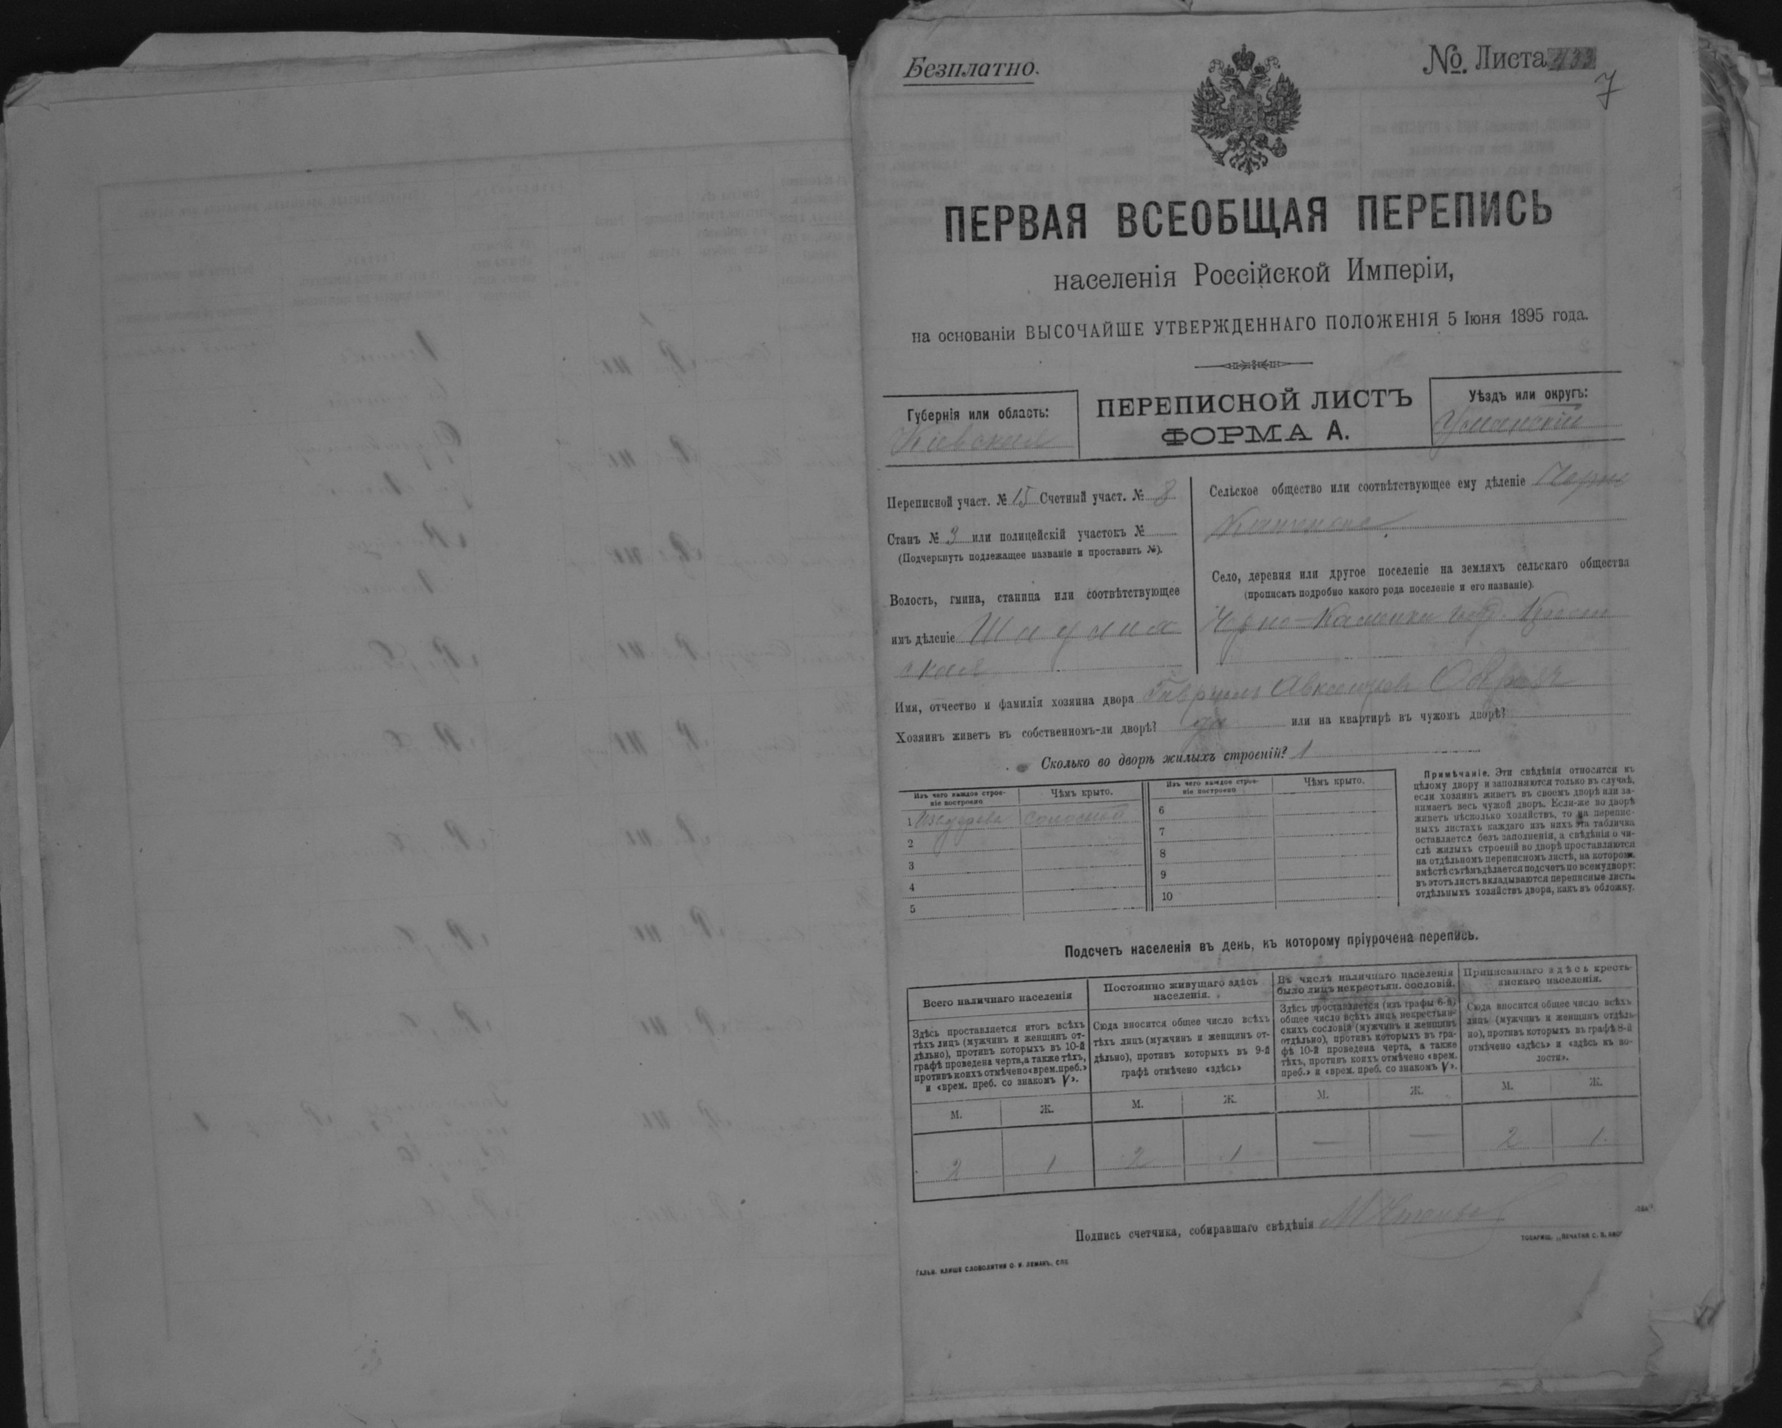 Безплатно.
№. Листа 433
7
ПЕРВАЯ ВСЕОБЩАЯ ПЕРЕПИСЬ
населенія Россійской Имперіи,
на основаніи ВЫСОЧАЙШЕ УТВЕРЖДЕННАГО ПОЛОЖЕНІЯ 5 Іюня 1895 года.
Губернія или область:
Кіевская
ПЕРЕПИСНОЙ ЛИСТЪ
ФОРМА А.
Уѣздъ или округъ:
Уманскій
Переписной участ. № 15 Счетный участ. № 8
Станъ № 3 или полицейскій участокъ №
(Подчеркнуть подлежащее названіе и проставить №).
Волость, гмина, станица или соотвѣтствующее
имъ дѣленіе
ская
Сельское общество или соотвѣтствующее ему дѣленіе Черно
Каменское
Село, деревня или другое поселеніе на земляхъ сельскаго общества
(прописать подробно какого рода поселеніе и его названіе).
Черно-Каменка
Имя, отчество и фамилія хозяина двора Гаврилъ
Хозяинъ живетъ въ собственномъ-ли дворѣ? да или на квартирѣ въ чужомъ дворѣ?
Сколько во дворѣ жилыхъ строеній? 1
Изъ чего каждое строе-
ніе построено
Чѣмъ крыто.
1 Изъ дерева соломой
2
3
4
5
Изъ чего каждое строе-
ніе построено
Чѣмъ крыто.
6
7
8
9
10
Примѣчаніе. Эти свѣдѣнія относятся къ
цѣлому двору и заполняются только въ случаѣ,
если хозяинъ живетъ въ своемъ дворѣ или за-
нимаетъ весь чужой дворъ. Если-же во дворѣ
живетъ нѣсколько хозяйствъ, то на перепис-
ныхъ листахъ каждаго изъ нихъ эта табличка
оставляется безъ заполненія, а свѣдѣнія о чи-
слѣ жилыхъ строеній во дворѣ проставляются
на отдѣльномъ переписномъ листѣ, на которомъ
вмѣстѣ съ тѣмъ дѣлается подсчетъ по всему двору;
въ этотъ листъ вкладываются переписные листы
отдѣльныхъ хозяйствъ двора, какъ въ обложку.
Подсчетъ населенія въ день, къ которому пріурочена перепись.
Всего наличнаго населенія
Здѣсь проставляется итогъ всѣхъ
тѣхъ лицъ (мужчинъ и женщинъ от-
дѣльно), противъ которыхъ въ 10-й
графѣ проведена черта, а также тѣхъ,
противъ коихъ отмѣчено «врем. преб.»
и «врем. преб. со знакомъ V».
М. Ж.
2 1
Постоянно живущаго здѣсь
населенія.
Сюда вносится общее число всѣхъ
тѣхъ лицъ (мужчинъ и женщинъ от-
дѣльно), противъ которыхъ въ 9-й
графѣ отмѣчено «здѣсь»
М. Ж.
2 1
Въ числѣ наличнаго населенія
было лицъ некрестьян. сословій.
Здѣсь проставляется (изъ графы 6-й)
общее число всѣхъ лицъ некрестьян-
скихъ сословій (мужчинъ и женщинъ
отдѣльно), противъ которыхъ въ гра-
фѣ 10-й проведена черта, а также
тѣхъ, противъ коихъ отмѣчено «врем.
преб.» и «врем. преб. со знакомъ V».
М. Ж.
— —
Приписаннаго здѣсь кресть-
янскаго населенія.
Сюда вносится общее число всѣхъ
лицъ (мужчинъ и женщинъ отдѣль-
но), противъ которыхъ въ графѣ 8-й
отмѣчено «здѣсь» и «здѣсь въ во-
лости».
М. Ж.
2 1
Подпись счетчика, собиравшаго свѣдѣнія
ГАЛЬВ. КЛИШЕ СЛОВОЛИТНИ О. И. ЛЕМАНЪ, СПБ